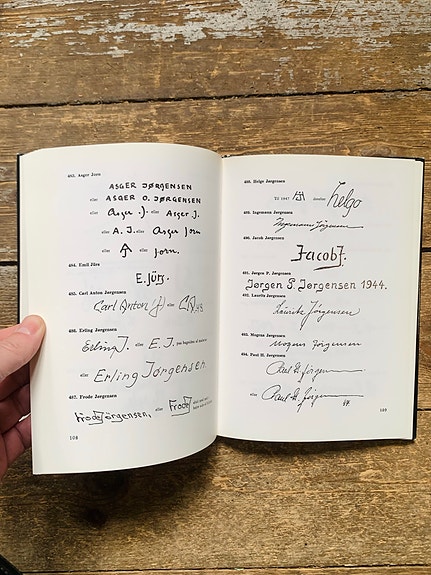 483. Asger Jorn
ASGER JØRGENSEN
eller ASGER O. JØRGENSEN
eller Asger J. eller Asger J.
eller A. J. eller Asger Jorn
eller AJ eller Jorn.
484. Emil Jürs
E. Jürs.
485. Carl Anton Jørgensen
Carl Anton J eller CAJ 48
486. Erling Jørgensen
Erling J. eller E. J.
eller Erling Jørgensen.
487. Frode Jørgensen
Frode Jörgensen, eller Frode J
108
488. Helge Jørgensen
Til 1947 HJ derefter helgo
489. Ingemann Jørgensen
Ingemann Jørgensen
490. Jacob Jørgensen
Jacob J.
491. Jørgen P. Jørgensen
Jørgen P. Jørgensen 1944.
492. Lauritz Jørgensen
Lauritz Jörgensen
493. Mogens Jørgensen
Mogens Jørgensen
494. Poul H. Jørgensen
Poul H. Jörgen
eller Poul H. Jörgen
109